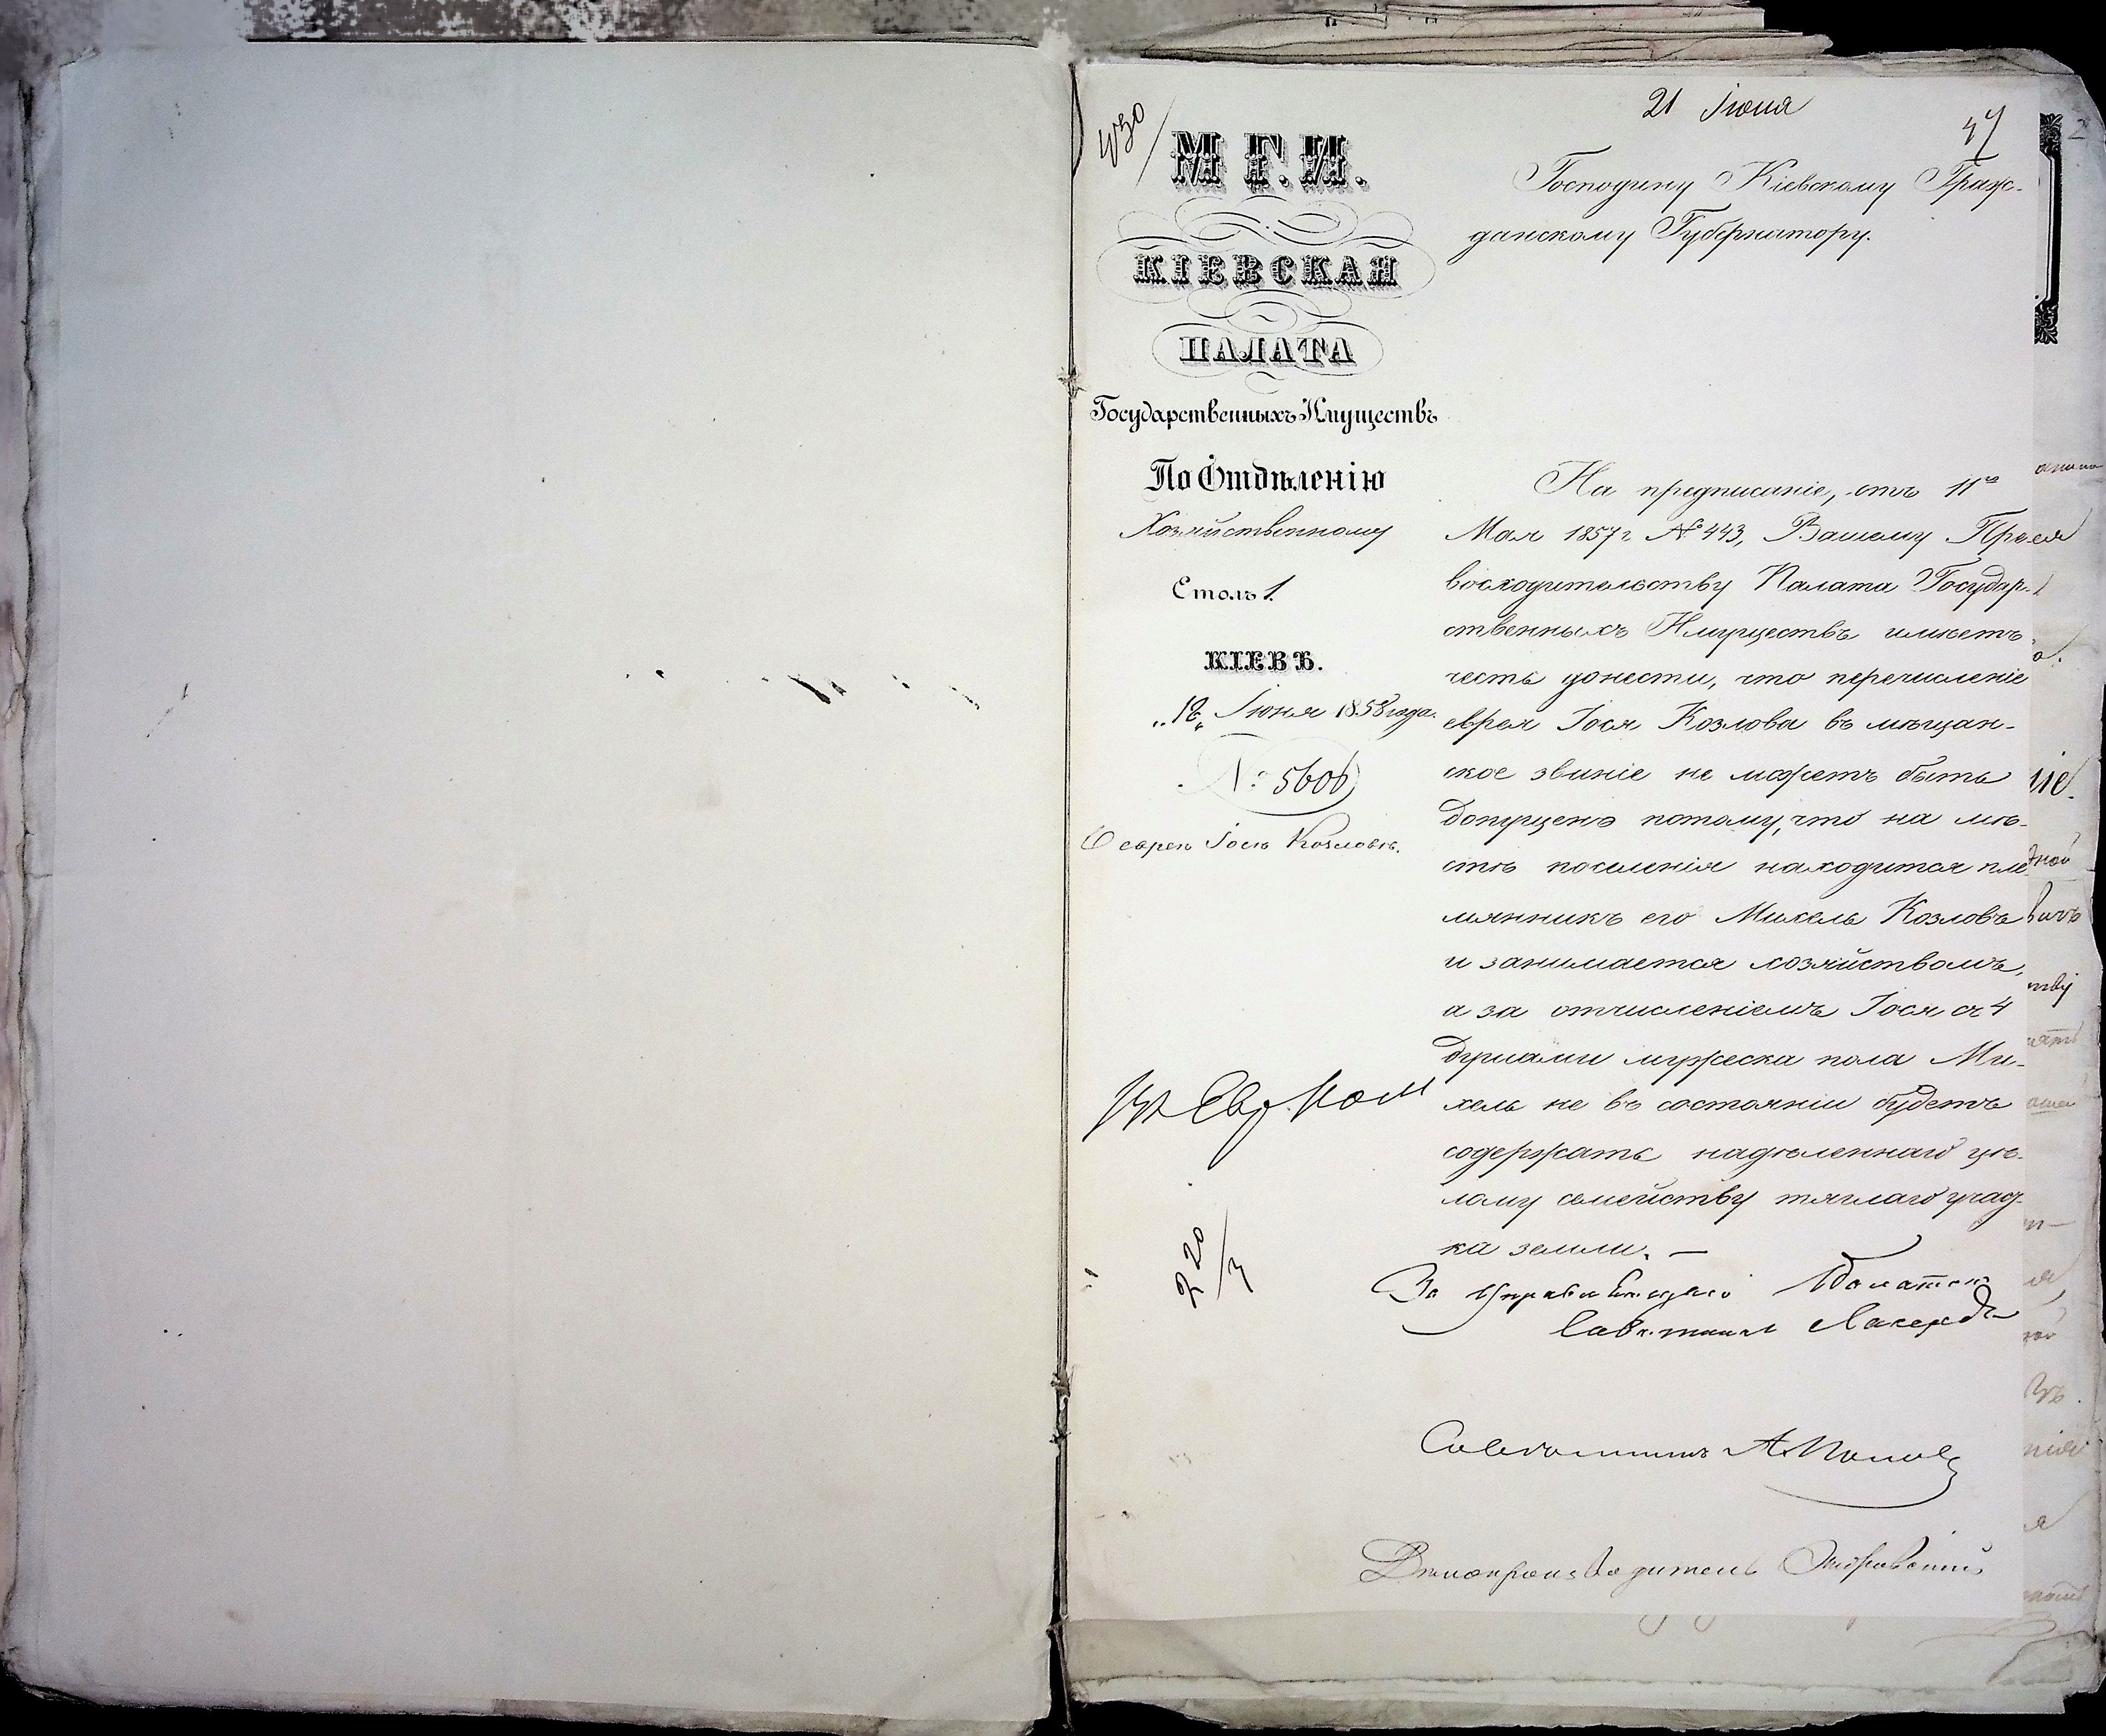 21 Іюня
47
430
М Г. И.
КІЕВСКАЯ
ПАЛАТА
Государственныхъ Имуществъ
По Отдѣленію
Хозяйственному
Столъ 1.
КІЕВЪ.
„18„ Іюня 1858 года.
№ 5606
О евреѣ Іосѣ Козловѣ.
Господину Кіевскому Граж-
данскому Губернатору.
На предписаніе, отъ 11го
Мая 1857 г. № 443, Вашему Пре-
восходительству Палата Государ-
ственныхъ Имуществъ имѣетъ
честь донести, что перечисленіе
еврея Іося Козлова въ мѣщан-
ское званіе не можетъ быть
допущено потому, что на мѣ-
стѣ поселенія находится пле-
мянникъ его Михель Козловъ
и занимается хозяйствомъ,
а за отчисленіемъ Іося съ 4
душами мужеска пола Ми-
хель не въ состояніи будетъ
содержать надѣленнаго цѣ-
лому семейству тяглаго учас-
ка земли. —
За Управляющаго Палатою
Совѣтникъ
Совѣтникъ А. Поповъ
Дѣлопроизводитель